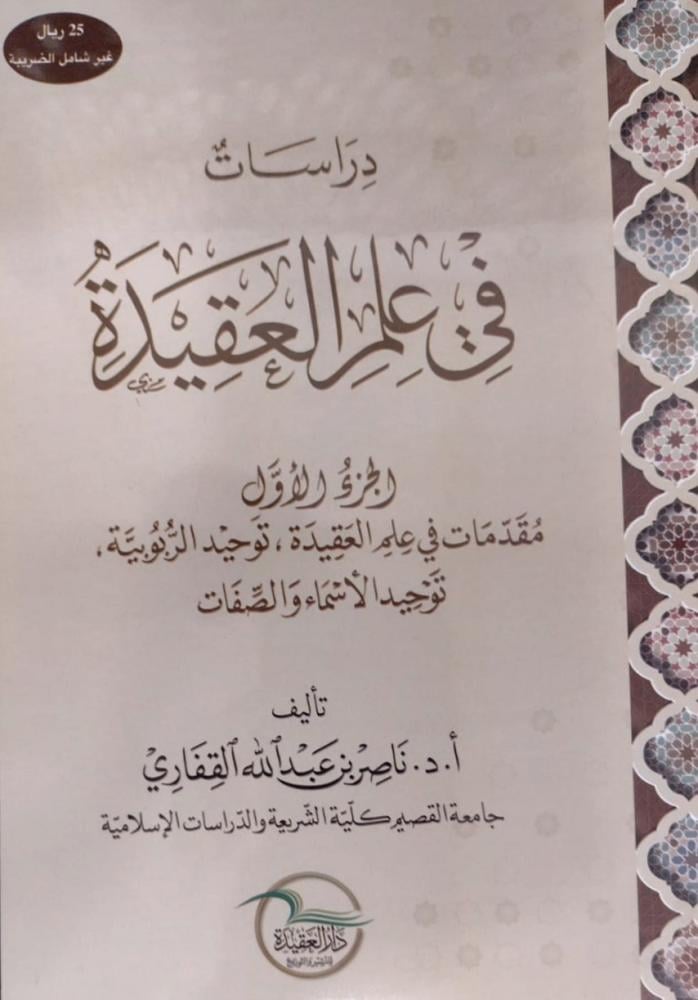 25 ريال
غير شامل الضريبة
دِرَاسَاتٌ
فِيْ عِلْمِ الْعَقِيْدَةِ
الجزءُ الأوَّل
مُقَدّمَات في عِلمِ العَقِيدَة، تَوحيْد الرُّبُوبيَّة،
تَوْحِيد الأسْمَاء وَالصِّفَات
تأليف
أ. د. نَاصِرْ بن عَبْد الله القِفَارِيْ
جامعة القصيم كليّة الشّريعة والدّراسات الإسلاميّة
دَارُ العَقِيْدَة
للنشر والتوزيع